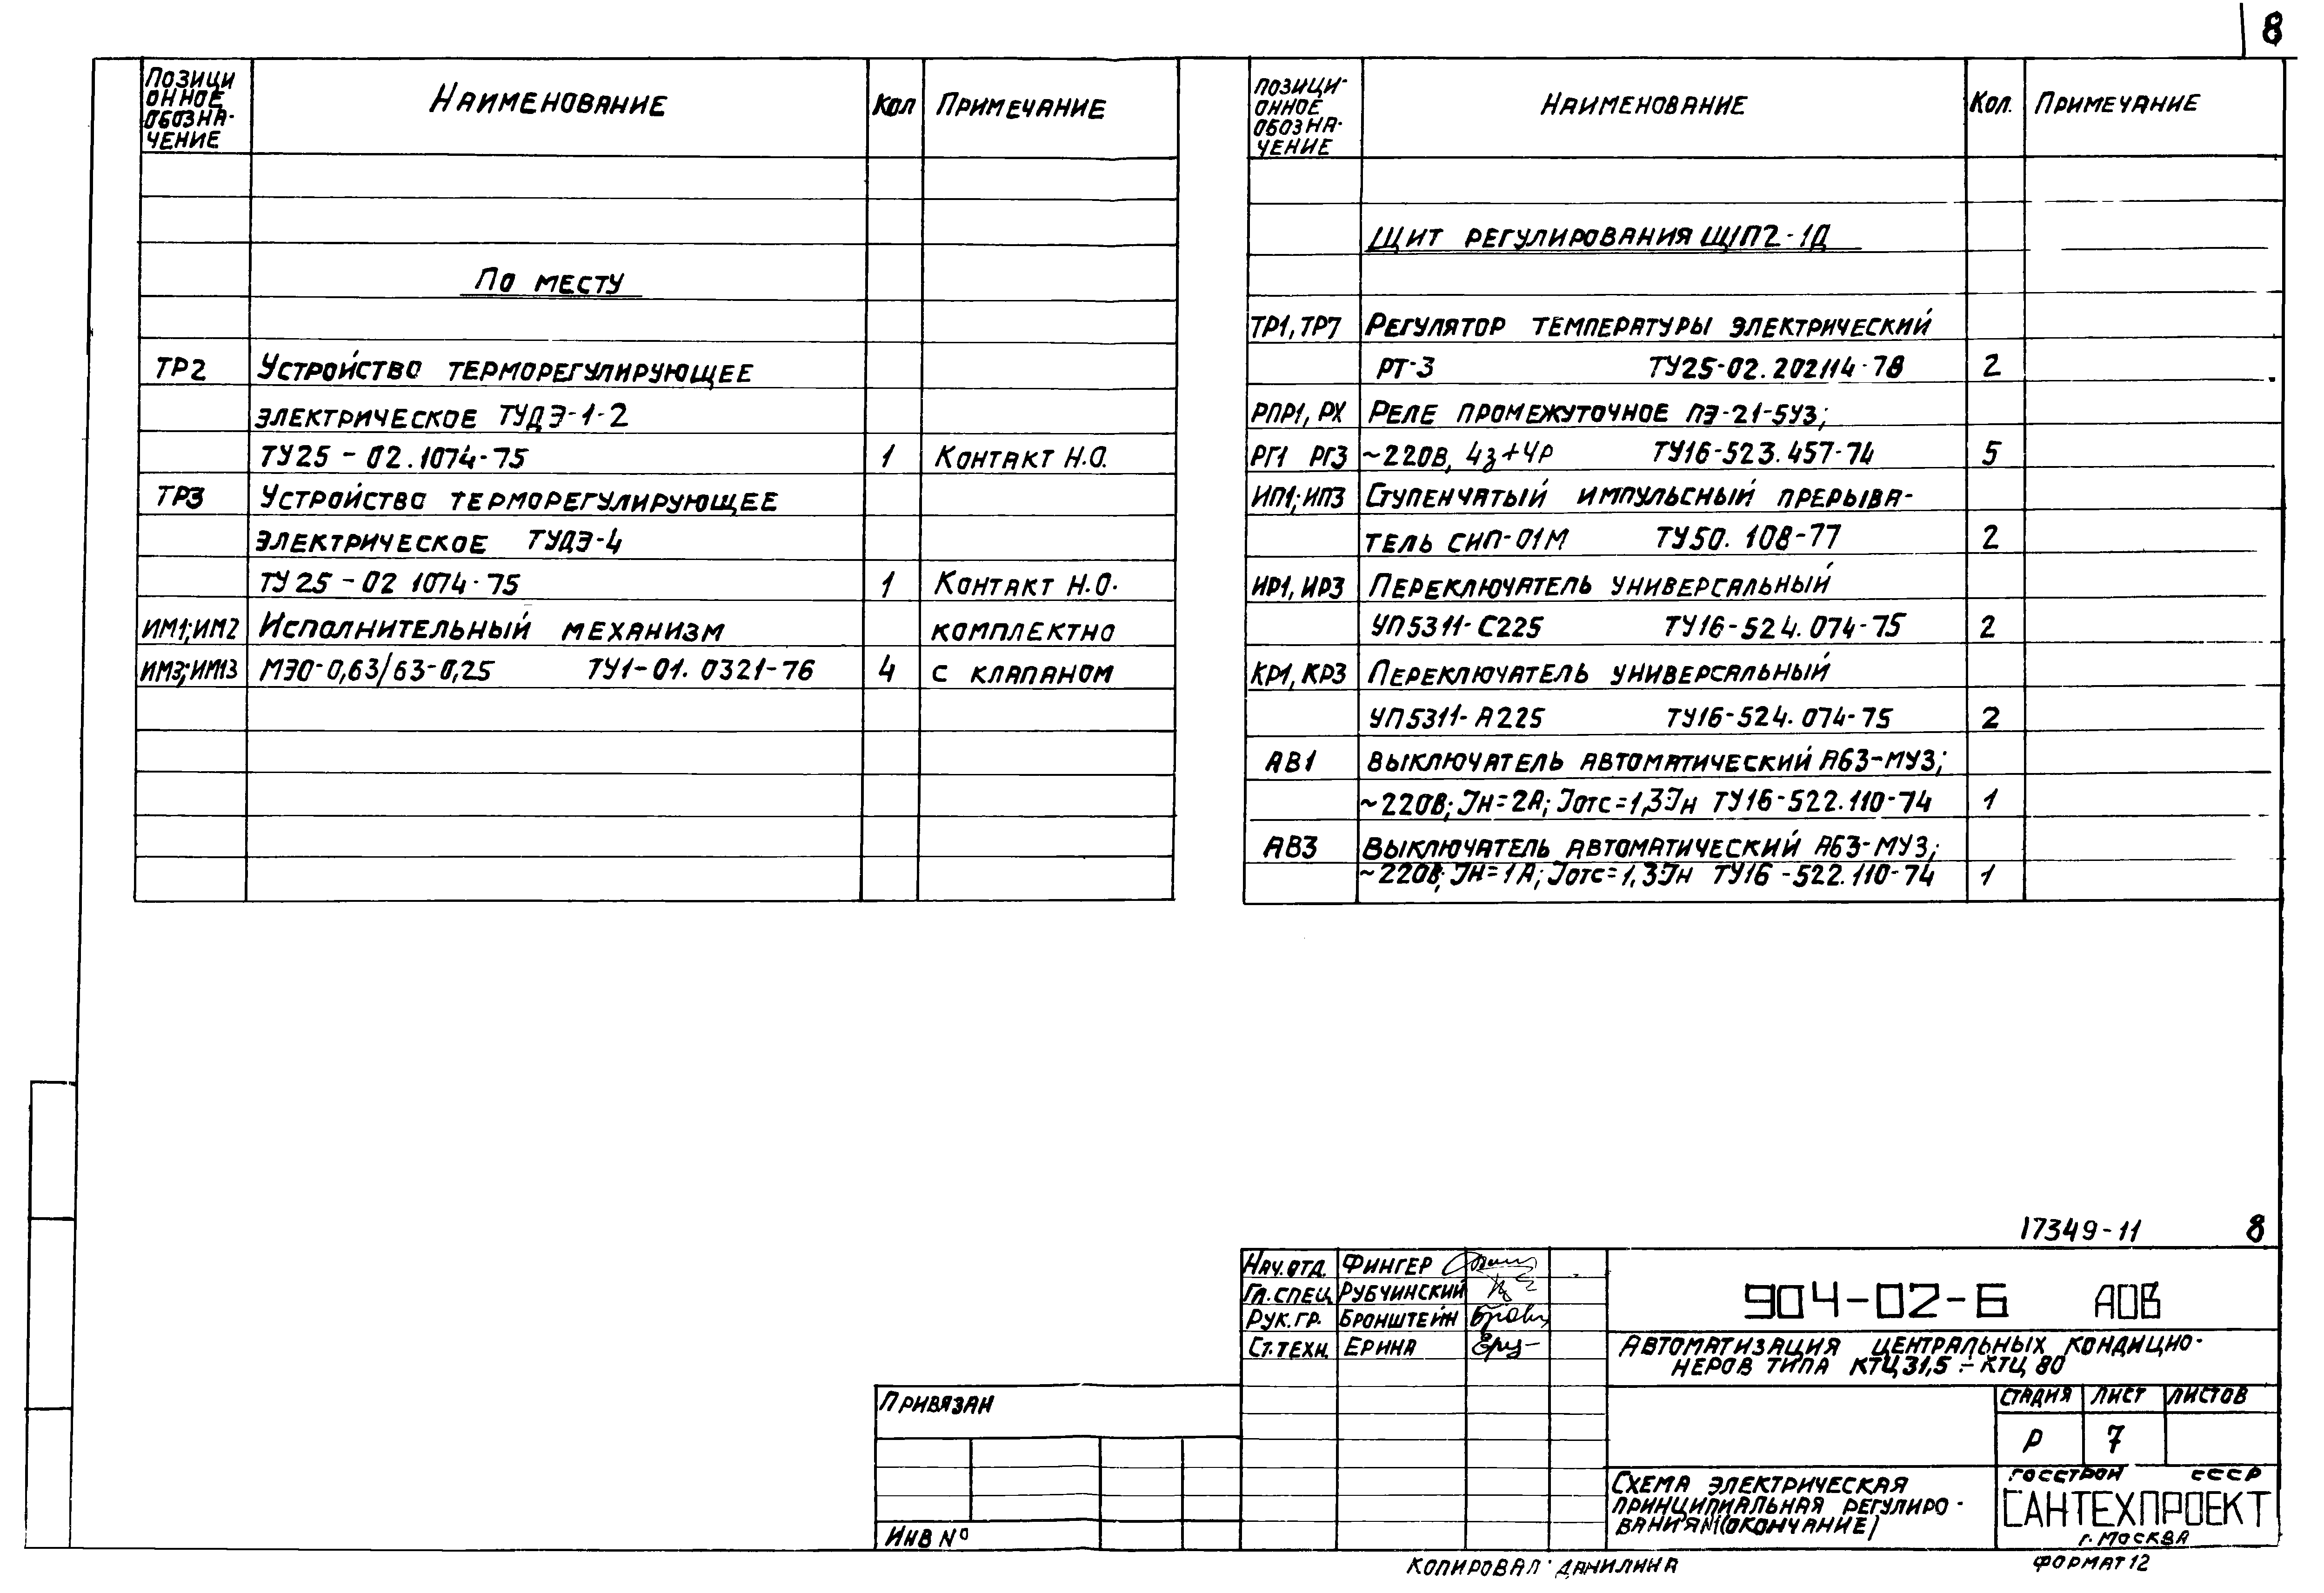 8
Позици
онное
обозна-
чение
Наименование
Кол
Примечание
По месту
ТР2 Устройство терморегулирующее
электрическое ТУДЭ-1-2
ТУ25-02.1074-75 1 Контакт Н.О.
ТР3 Устройство терморегулирующее
электрическое ТУДЭ-4
ТУ25-02 1074-75 1 Контакт Н.О.
ИМ1;ИМ2 Исполнительный механизм комплектно
ИМ3;ИМ13 МЭО-0,63/63-0,25 ТУ1-01.0321-76 4 с клапаном
Позици-
онное
обозна-
чение
Наименование
Кол.
Примечание
Щит регулирования Щ1П2-1Д
ТР1,ТР7 Регулятор температуры электрический
РТ-3 ТУ25-02.202114-78 2
РПР1,РХ Реле промежуточное ПЭ-21-5У3;
РГ1 РГ3 ~220В, 4з+4р ТУ16-523.457-74 5
ИП1;ИП3 Ступенчатый импульсный прерыва-
тель СИП-01М ТУ50.108-77 2
ИР1,ИР3 Переключатель универсальный
УП5311-С225 ТУ16-524.074-75 2
КР1,КР3 Переключатель универсальный
УП5311-А225 ТУ16-524.074-75 2
АВ1 Выключатель автоматический А63-МУ3;
~220В; Jн=2А; Jотс=1,3Jн ТУ16-522.110-74 1
АВ3 Выключатель автоматический А63-МУ3;
~220В; Jн=1А; Jотс=1,3Jн ТУ16-522.110-74 1
17349-11 8
Нач.отд. Фингер
Гл.спец Рубчинский
Рук.гр. Бронштейн
Ст.техн. Ерина
904-02-6 АОВ
Автоматизация центральных кондицио-
неров типа КТЦ31,5÷КТЦ 80
Стадия Лист Листов
Р 7
Схема электрическая
принципиальная регулиро-
вания №1(окончание)
Госстрой СССР
САНТЕХПРОЕКТ
г. Москва
Привязан
Инв №
Копировал: Данилина
Формат 12